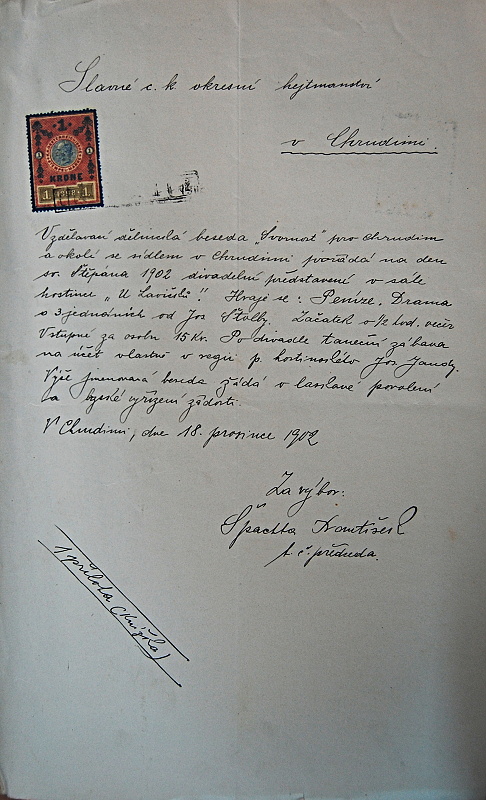 Slavné c. k. okresní hejtmanství
v Chrudimi.
1
KRONE
1 1898 1
Vzdělavací dělnická beseda „Svornost" pro Chrudim
a okolí se sídlem v Chrudimi pořádá na den
sv. Štěpána 1902 divadelní představení v sále
hostince „U Lavičků". Hraje se: Peníze. Drama
o 3 jednáních od Jos Štolby. Začátek o ½ hod. večer
Vstupné za osobu 15 Kr. Po divadle taneční zábava
na účet vlastně v regii p. hostinského Jos Jandy.
Výše jmenovaná beseda žádá v laskavé povolení
a brzské vyřízení žádosti.
V Chrudimi, dne 18. prosince 1902
Za výbor:
Špachta František
t. č. předseda.
1 příloha (Knížka)